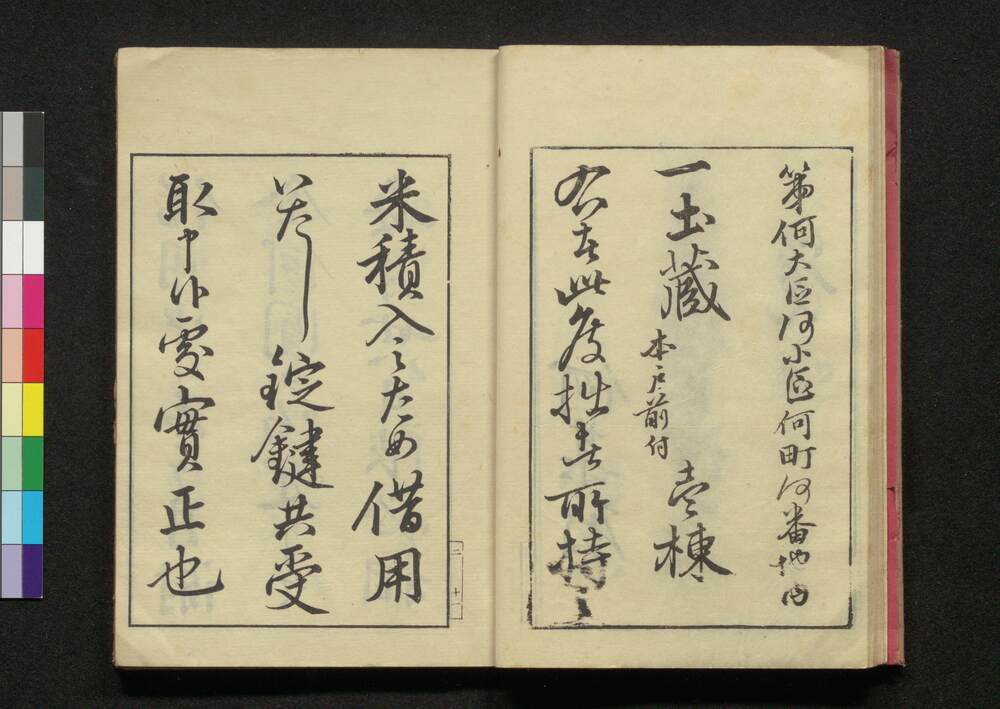 第何大区何小区何町何番地内
一土蔵 本戸前付 壱棟
右者此度拙者所持之
米積入之ため借用
いたし錠鍵共受
取申候處實正也